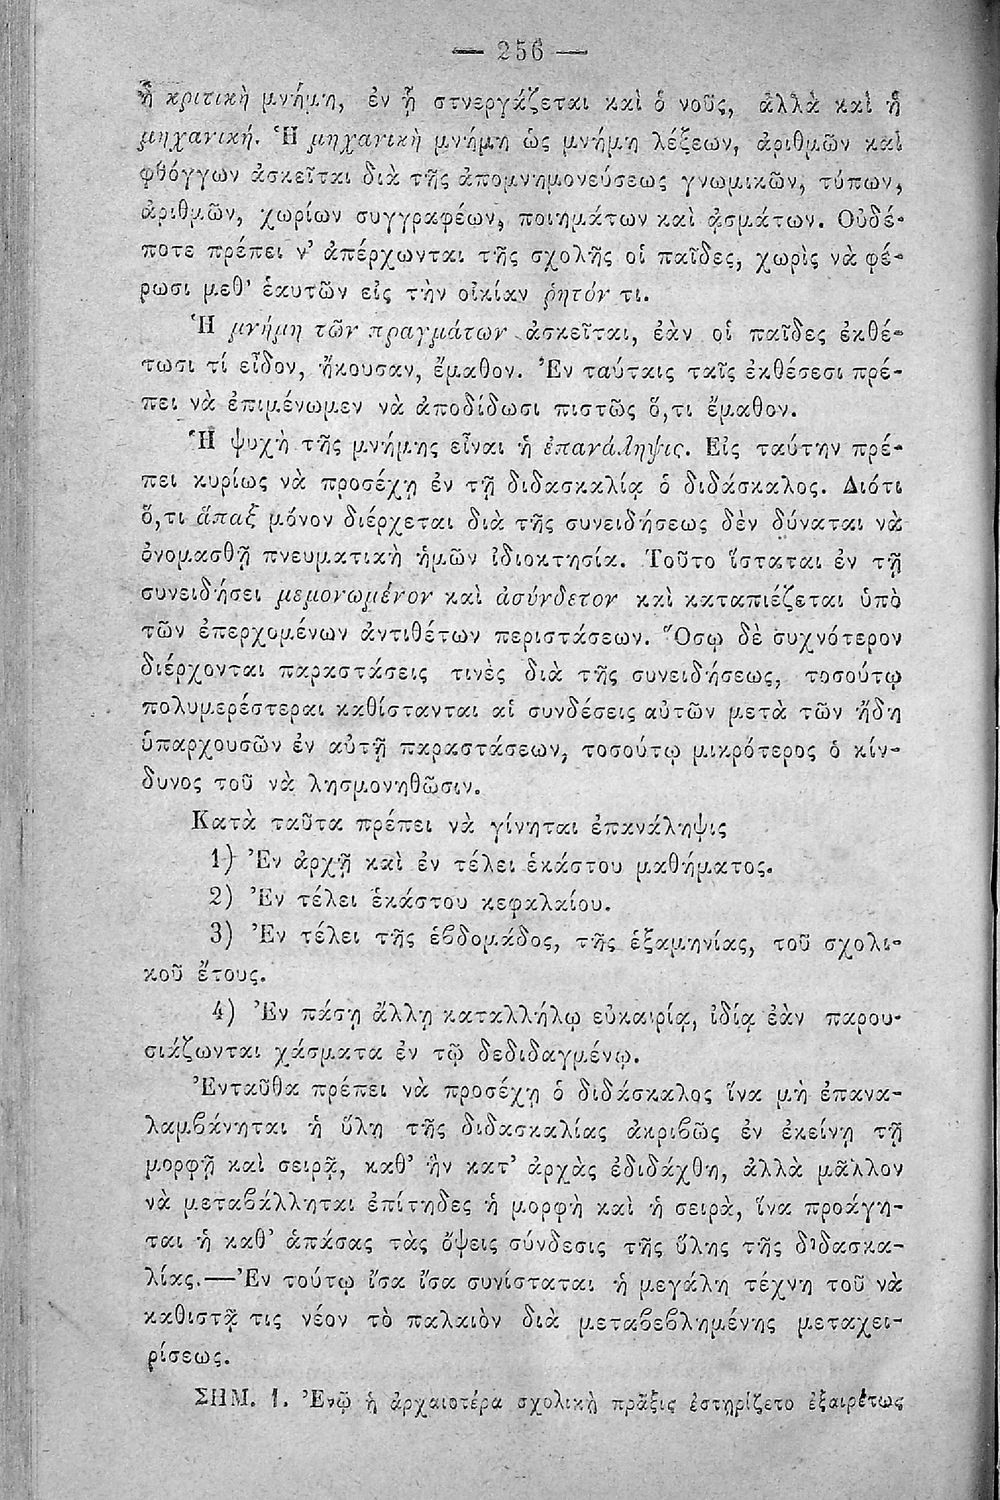 — 256 —
ἡ κριτικὴ μνήμη, ἐν ᾗ στνεργάζεται καὶ ὁ νοῦς, ἀλλὰ καὶ ἡ
μηχανική. Ἡ μηχανικὴ μνήμη ὡς μνήμη λέξεων, ἀριθμῶν καὶ
φθόγγων ἀσκεῖται διὰ τῆς ἀπομνημονεύσεως γνωμικῶν, τύπων,
ἀριθμῶν, χωρίων συγγραφέων, ποιημάτων καὶ ᾀσμάτων. Οὐδέ-
ποτε πρέπει ν' ἀπέρχωνται τῆς σχολῆς οἱ παῖδες, χωρὶς νὰ φέ-
ρωσι μεθ' ἑαυτῶν εἰς τὴν οἰκίαν ῥητόν τι.
Ἡ μνήμη τῶν πραγμάτων ἀσκεῖται, ἐὰν οἱ παῖδες ἐκθέ-
τωσι τί εἶδον, ἤκουσαν, ἔμαθον. Ἐν ταύταις ταῖς ἐκθέσεσι πρέ-
πει νὰ ἐπιμένωμεν νὰ ἀποδίδωσι πιστῶς ὅ,τι ἔμαθον.
Ἡ ψυχὴ τῆς μνήμης εἶναι ἡ ἐπανάληψις. Εἰς ταύτην πρέ-
πει κυρίως νὰ προσέχῃ ἐν τῇ διδασκαλίᾳ ὁ διδάσκαλος. Διότι
ὅ,τι ἅπαξ μόνον διέρχεται διὰ τῆς συνειδήσεως δὲν δύναται νὰ
ὀνομασθῇ πνευματικὴ ἡμῶν ἰδιοκτησία. Τοῦτο ἵσταται ἐν τῇ
συνειδήσει μεμονωμένον καὶ ἀσύνδετον καὶ καταπιέζεται ὑπὸ
τῶν ἐπερχομένων ἀντιθέτων περιστάσεων. Ὅσῳ δὲ συχνότερον
διέρχονται παραστάσεις τινὲς διὰ τῆς συνειδήσεως, τοσούτῳ
πολυμερέστεραι καθίστανται αἱ συνδέσεις αὐτῶν μετὰ τῶν ἤδη
ὑπαρχουσῶν ἐν αὐτῇ παραστάσεων, τοσούτῳ μικρότερος ὁ κίν-
δυνος τοῦ νὰ λησμονηθῶσιν.
Κατὰ ταῦτα πρέπει νὰ γίνηται ἐπανάληψις
1) Ἐν ἀρχῇ καὶ ἐν τέλει ἑκάστου μαθήματος.
2) Ἐν τέλει ἑκάστου κεφαλαίου.
3) Ἐν τέλει τῆς ἑβδομάδος, τῆς ἑξαμηνίας, τοῦ σχολι-
κοῦ ἔτους.
4) Ἐν πάσῃ ἄλλῃ καταλλήλῳ εὐκαιρίᾳ, ἰδίᾳ ἐὰν παρου-
σιάζωνται χάσματα ἐν τῷ δεδιδαγμένῳ.
Ἐνταῦθα πρέπει νὰ προσέχῃ ὁ διδάσκαλος ἵνα μὴ ἐπανα-
λαμβάνηται ἡ ὕλη τῆς διδασκαλίας ἀκριβῶς ἐν ἐκείνῃ τῇ
μορφῇ καὶ σειρᾷ, καθ' ἣν κατ' ἀρχὰς ἐδιδάχθη, ἀλλὰ μᾶλλον
νὰ μεταβάλληται ἐπίτηδες ἡ μορφὴ καὶ ἡ σειρὰ, ἵνα προάγη-
ται ἡ καθ' ἁπάσας τὰς ὄψεις σύνδεσις τῆς ὕλης τῆς διδασκα-
λίας.—Ἐν τούτῳ ἴσα ἴσα συνίσταται ἡ μεγάλη τέχνη τοῦ νὰ
καθιστᾷ τις νέον τὸ παλαιὸν διὰ μεταβεβλημένης μεταχει-
ρίσεως.
ΣΗΜ. 1. Ἐνῷ ἡ ἀρχαιοτέρα σχολικὴ πρᾶξις ἐστηρίζετο ἐξαιρέτως